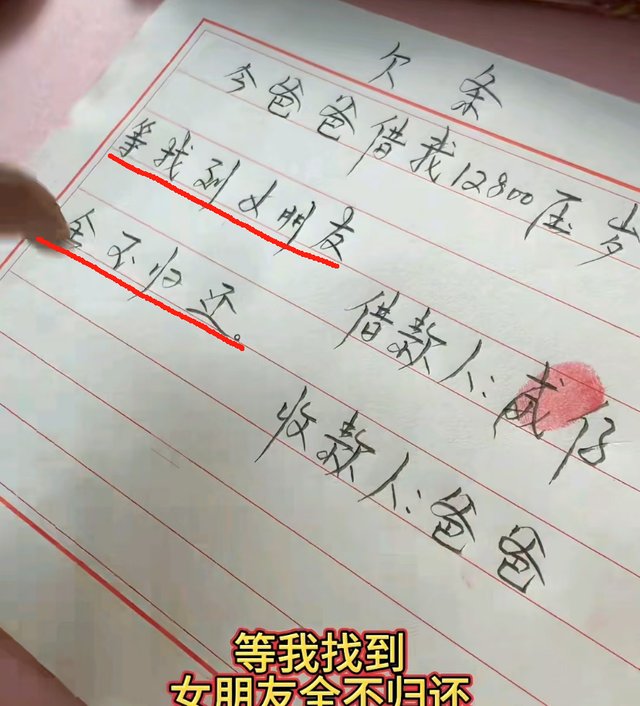 欠条
今爸爸借我12800压岁
等我到女朋友
全不归还。
借款人:威仔
收款人:爸爸
等我找到
女朋友全不归还